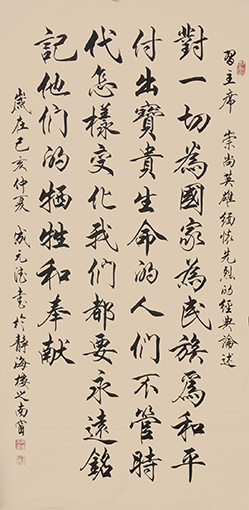 習主席 崇尚英雄緬懷先烈的經典論述
對一切為國家為民族為和平
付出寶貴生命的人們不管時
代怎樣變化我們都要永遠銘
記他們的牺牲和奉献
歲在己亥仲夏 成元法書於靜海樓之南窗